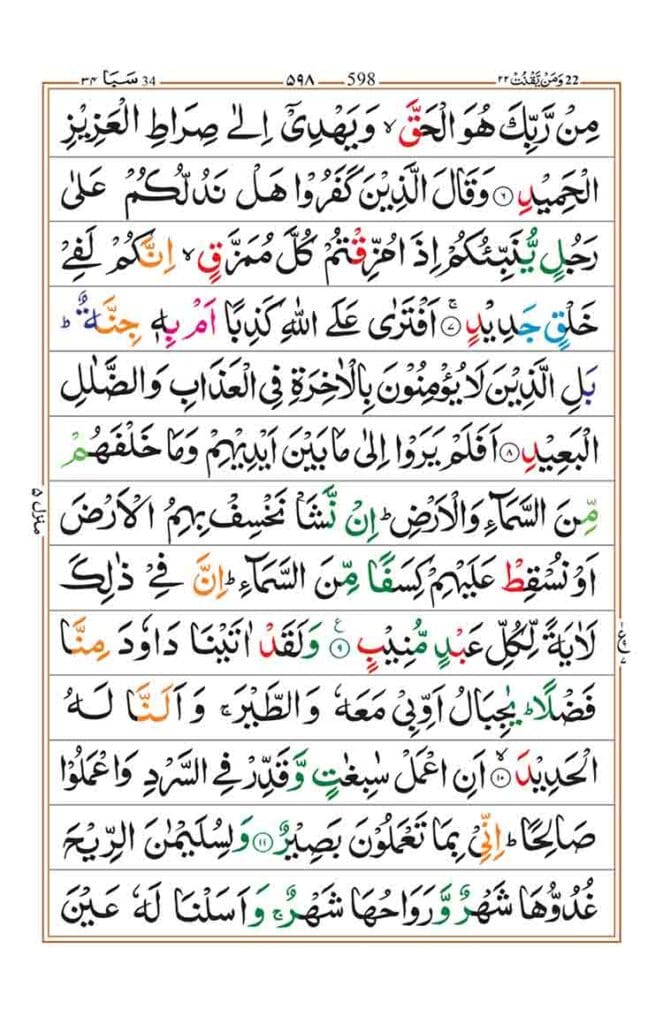 22 وَمَنْ يَّقْنُتْ ٢٢ 598 ٥٩٨ 34 سَبَا ٣٤
مِنْ رَّبِّكَ هُوَ الْحَقَّ ۙ وَيَهْدِيْۤ اِلٰى صِرَاطِ الْعَزِيْزِ
الْحَمِيْدِ ﴿٦﴾ وَقَالَ الَّذِيْنَ كَفَرُوْا هَلْ نَدُلُّكُمْ عَلٰى
رَجُلٍ يُّنَبِّئُكُمْ اِذَا مُزِّقْتُمْ كُلَّ مُمَزَّقٍ ۙ اِنَّكُمْ لَفِيْ
خَلْقٍ جَدِيْدٍ ﴿٧﴾ۚ اَفْتَرٰى عَلَى اللّٰهِ كَذِبًا اَمْ بِهٖ جِنَّةٌ ؕ
بَلِ الَّذِيْنَ لَا يُؤْمِنُوْنَ بِالْاٰخِرَةِ فِي الْعَذَابِ وَالضَّلٰلِ
الْبَعِيْدِ ﴿٨﴾ اَفَلَمْ يَرَوْا اِلٰى مَا بَيْنَ اَيْدِيْهِمْ وَمَا خَلْفَهُمْ
مِّنَ السَّمَآءِ وَالْاَرْضِ ؕ اِنْ نَّشَاْ نَخْسِفْ بِهِمُ الْاَرْضَ
اَوْ نُسْقِطْ عَلَيْهِمْ كِسَفًا مِّنَ السَّمَآءِ ؕ اِنَّ فِيْ ذٰلِكَ
لَاٰيَةً لِّكُلِّ عَبْدٍ مُّنِيْبٍ ﴿٩﴾ۧ وَلَقَدْ اٰتَيْنَا دَاوٗدَ مِنَّا
فَضْلًا ؕ يٰجِبَالُ اَوِّبِيْ مَعَهٗ وَالطَّيْرَ ۚ وَاَلَنَّا لَهُ
الْحَدِيْدَ ﴿١٠﴾ۙ اَنِ اعْمَلْ سٰبِغٰتٍ وَّقَدِّرْ فِي السَّرْدِ وَاعْمَلُوْا
صَالِحًا ؕ اِنِّيْ بِمَا تَعْمَلُوْنَ بَصِيْرٌ ﴿١١﴾ وَلِسُلَيْمٰنَ الرِّيْحَ
غُدُوُّهَا شَهْرٌ وَّرَوَاحُهَا شَهْرٌ ۚ وَاَسَلْنَا لَهٗ عَيْنَ
منزل ٥